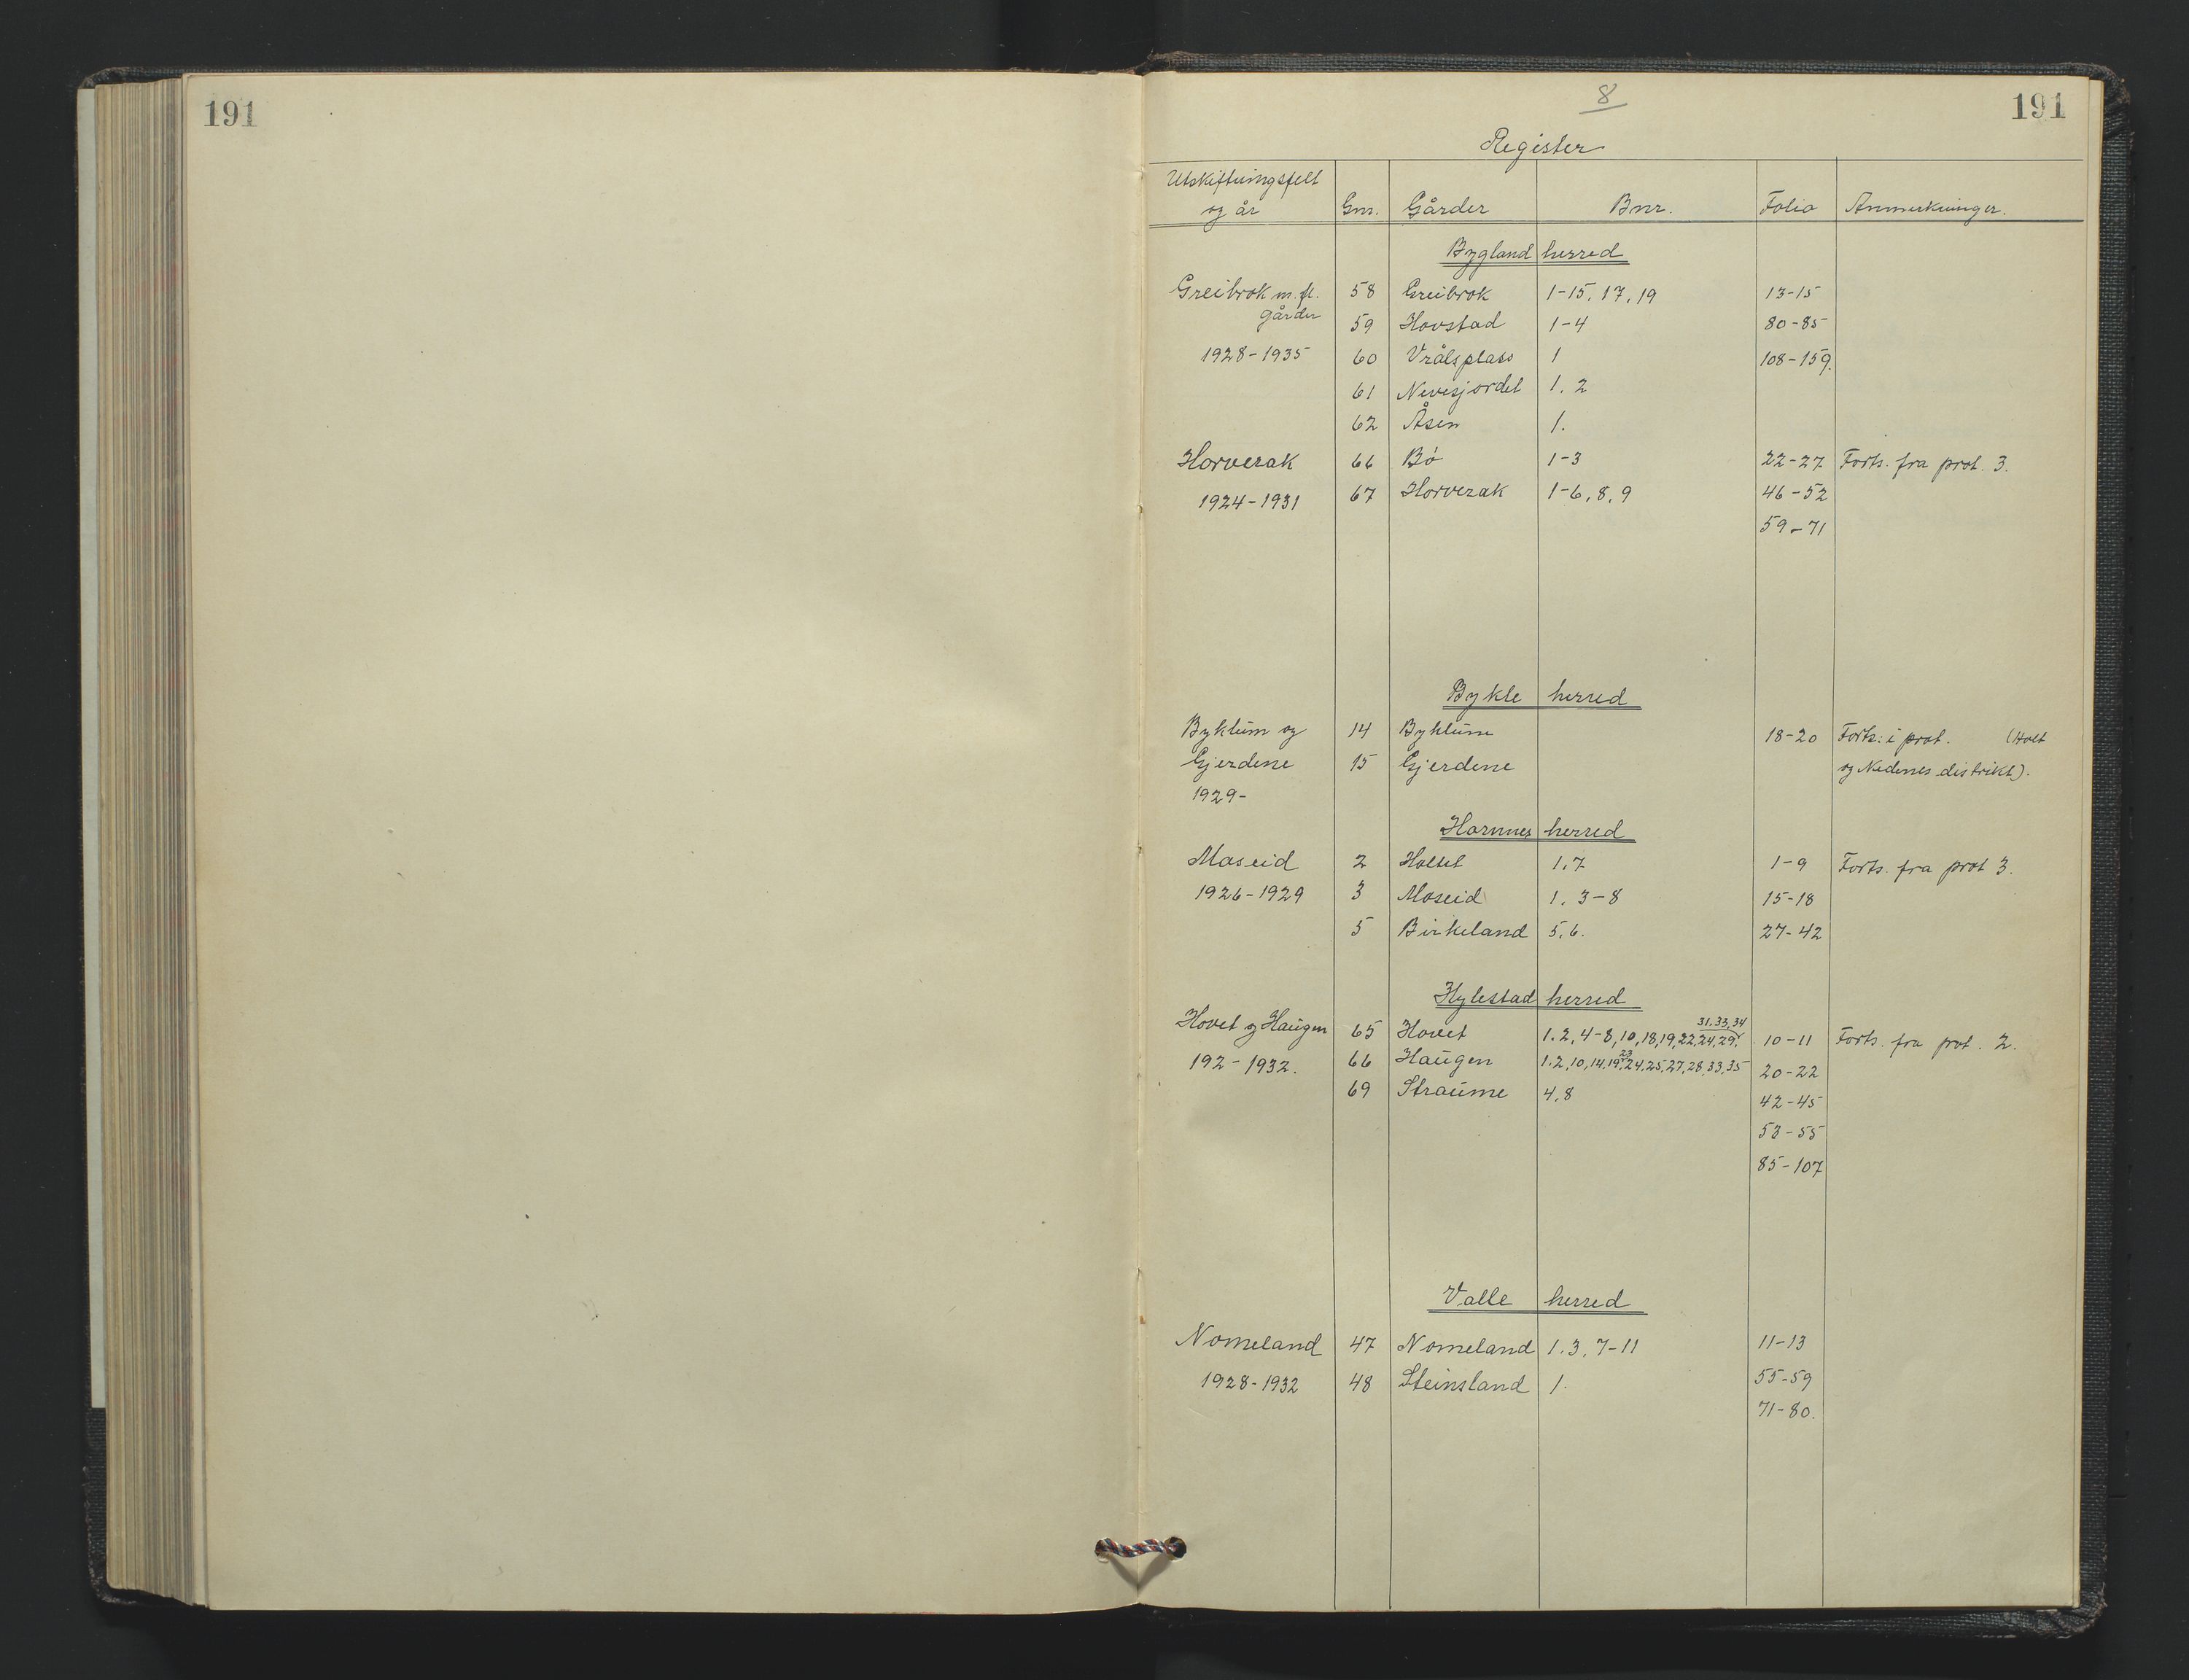 191
8
191
Register
Utskiftningsfelt og år | Gnr. | Gårder | Bnr. | Folio | Anmerkninger.
Bygland herred
Greibrok m.fl. | 58 | Greibrok | 1-15, 17, 19 | 13-15
gårder | 59 | Hovstad | 1-4 | 80-85
1928-1935 | 60 | Vrålsplass | 1 | 108-159.
61 | Nevesjordet | 1. 2
62 | Åsen | 1.
Horverak | 66 | Bö | 1-3 | 22-27 | Forts. fra prot. 3.
1924-1931 | 67 | Horverak | 1-6, 8, 9 | 46-52
59-71
Bykle herred
Byklum og | 14 | Byklum | 18-20 | Forts: i prot. (Holt
Gjerdene | 15 | Gjerdene | og Nedenes distrikt).
1929-
Hornnes herred
Moseid | 2 | Holtet | 1.7 | 1-9 | Forts. fra prot 3.
1926-1929 | 3 | Moseid | 1. 3-8 | 15-18
5 | Birkeland | 5.6. | 27-42
Hylestad herred
31.33,34
Hovet og Haugen | 65 | Hovet | 1.2,4-8,10,18,19,22,24,29. | 10-11 | Forts. fra prot. 2.
23
192 - 1932. | 66 | Haugen | 1.2,10,14,19,24,25,27,28,33,35 | 20-22
69 | Straume | 4,8 | 42-45
53-55
85-107
Valle herred
Nomeland | 47 | Nomeland | 1.3, 7-11 | 11-13
1928-1932 | 48 | Steinsland | 1. | 55-59
71-80.